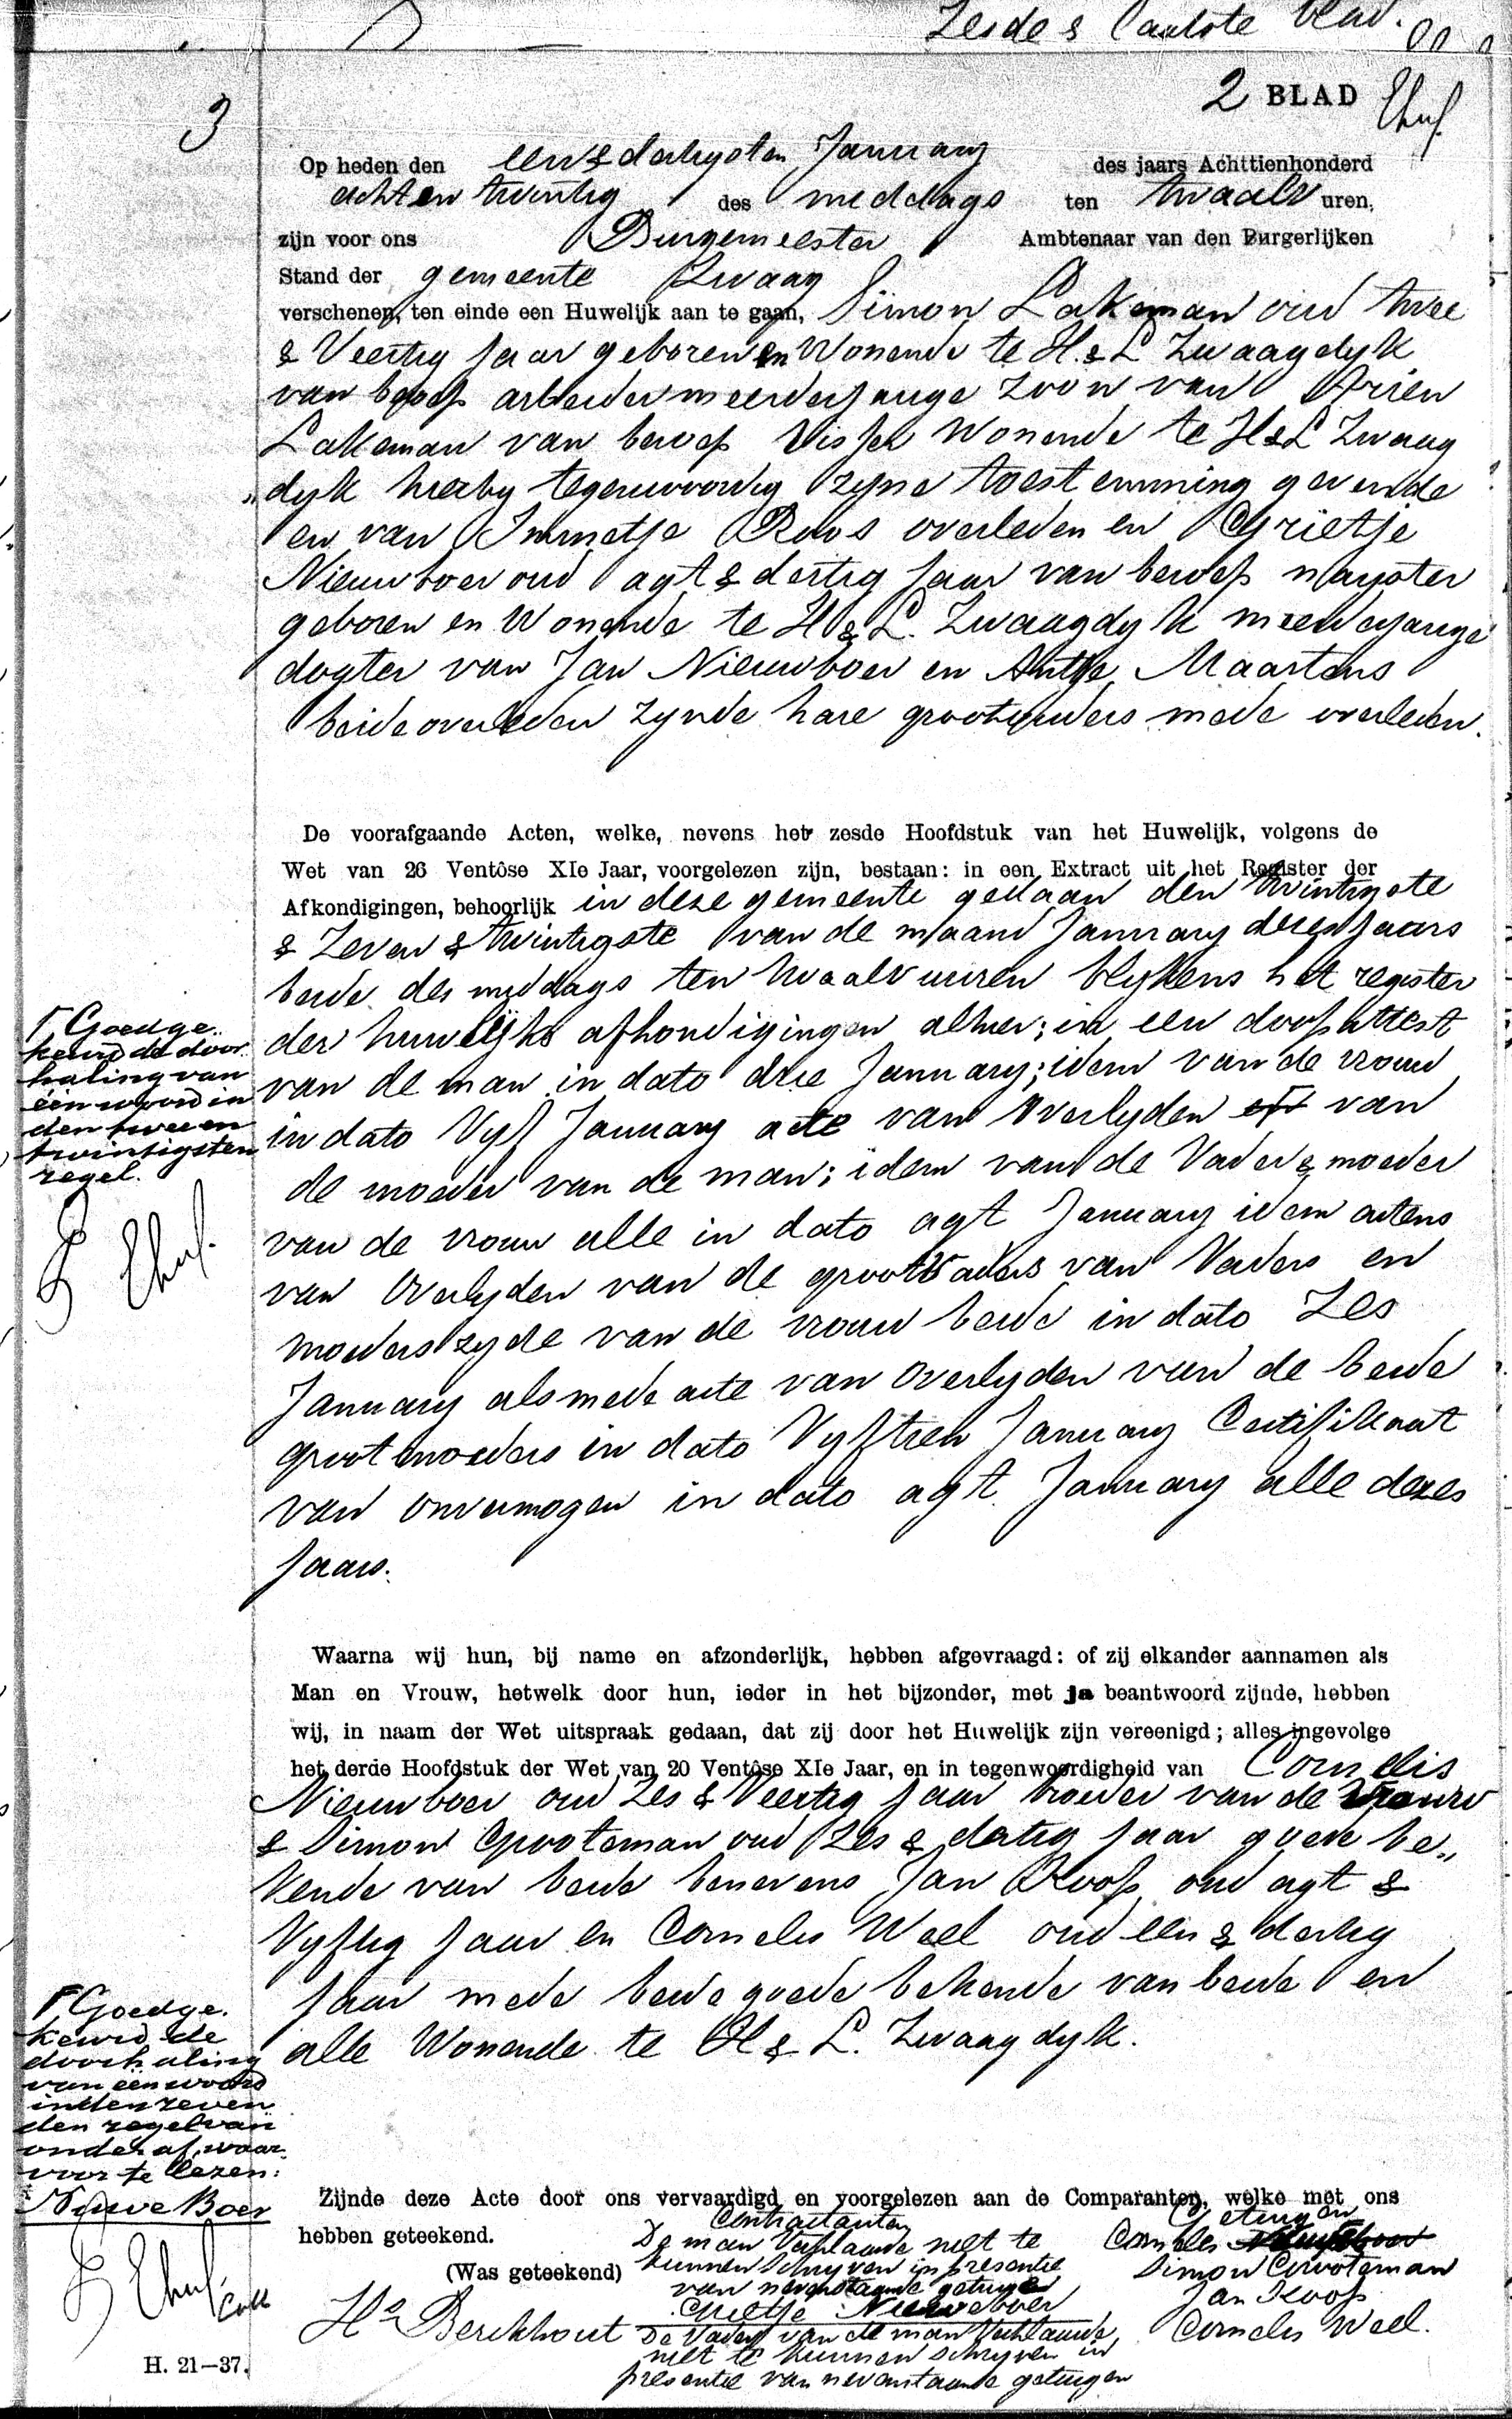 Zesde & laatste blad.
3
2 BLAD
Op heden den een & dertigsten January des jaars Achttienhonderd
acht en twintig des middags ten twaalv uren,
zijn voor ons Burgemeester Ambtenaar van den Burgerlijken
Stand der gemeente Zwaag
verschenen, ten einde een Huwelijk aan te gaan, Simon Lakeman oud twee
& Veertig Jaar geboren en Wonende te H. & L Zwaagdyk
van beroep arbeider meerderjarige zoon van Arien
Lakeman van beroep Visser Wonende te H & L Zwaag
„dyk hierby tegenwoordig zyne toestemming gevende
en van Immetje Roos overleden en Grietje
Nieuwboer oud agt & dertig Jaar van beroep nayster
geboren en Wonende te H & L. Zwaagdyk meerderjarige
dogter van Jan Nieuwboer en Antje Maartens
beide overleden zynde hare grootouders mede overleden.
De voorafgaande Acten, welke, nevens het zesde Hoofdstuk van het Huwelijk, volgens de
Wet van 26 Ventôse XIe Jaar, voorgelezen zijn, bestaan: in een Extract uit het Register der
Afkondigingen, behoorlijk in deze gemeente gedaan den twintigste
& Zeven & twintigste van de maand January dezes Jaars
beide des middags ten twaalv uuren blykens het register
der huwelijks afkondigingen alhier; in een doopattest
van de man in dato drie January; idem van de vrouw
in dato Vyf January acte van Overlyden van
de moeder van de man; idem van de Vader & moeder
van de vrouw alle in dato agt January idem actens
van Overlyden van de grootvaders van Vaders en
moeders zyde van de vrouw beide in dato Zes
January alsmede acte van Overlyden van de beide
grootmoeders in dato Vyftien January Certifikaat
van onvermogen in dato agt January alle dezes
Jaars.
Γ Goedge-
keurd de door-
haling van
één woord in
den twee en
twintigsten
regel.
Waarna wij hun, bij name en afzonderlijk, hebben afgevraagd: of zij elkander aannamen als
Man en Vrouw, hetwelk door hun, ieder in het bijzonder, met ja beantwoord zijnde, hebben
wij, in naam der Wet uitspraak gedaan, dat zij door het Huwelijk zijn vereenigd; alles ingevolge
het derde Hoofdstuk der Wet van 20 Ventôse XIe Jaar, en in tegenwoordigheid van Cornelis
Nieuwboer oud Zes & Veertig Jaar broeder van de Vrouw
& Simon Grooteman oud Zes & dertig Jaar goede be„
kende van beide benevens Jan Koop oud agt &
Vyftig Jaar en Cornelis Weel oud een & dertig
Jaar mede beide goede bekende van beide en
alle Wonende te H & L. Zwaagdyk.
Γ Goedge-
keurd de
doorhaling
van één woord
in den zeven
den regel van
onder af, waar
voor te lezen:
Nieuwe Boer
Zijnde deze Acte door ons vervaardigd en voorgelezen aan de Comparanten, welke met ons
hebben geteekend.
(Was geteekend)
Contractanten
De man Verklaarde niet te
kunnen schryven in presentie
van nevenstaande getuigen
Grietje Nieuweboer
De Vader van de man Verklaarde
niet te kunnen schryven in
presentie van nevenstaande getuigen
Getuigen
Cornelis
Simon Grooteman
Jan Koop
Cornelis Weel.
Hs Berckhout
H. 21—37.